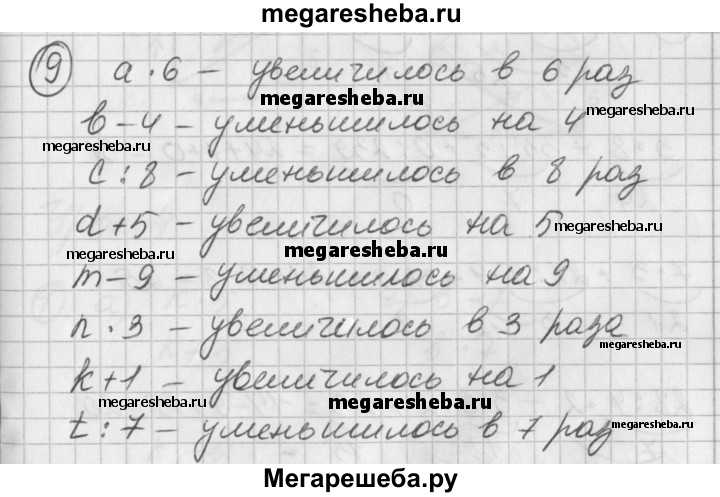 megaresheba.ru
9 a · 6 – увеличилось в 6 раз
megaresheba.ru
megaresheba.ru
в – 4 – уменьшилось на 4
megaresheba.ru
c : 8 – уменьшилось в 8 раз
d + 5 – увеличилось на 5
megaresheba.ru
megaresheba.ru
megaresheba.ru
m – 9 – уменьшилось на 9
n · 3 – увеличилось в 3 раза
megaresheba.ru
k + 1 – увеличилось на 1
megaresheba.ru
megaresheba.ru
t : 7 – уменьшилось в 7 раз
megaresheba.ru
Мегарешеба.ру